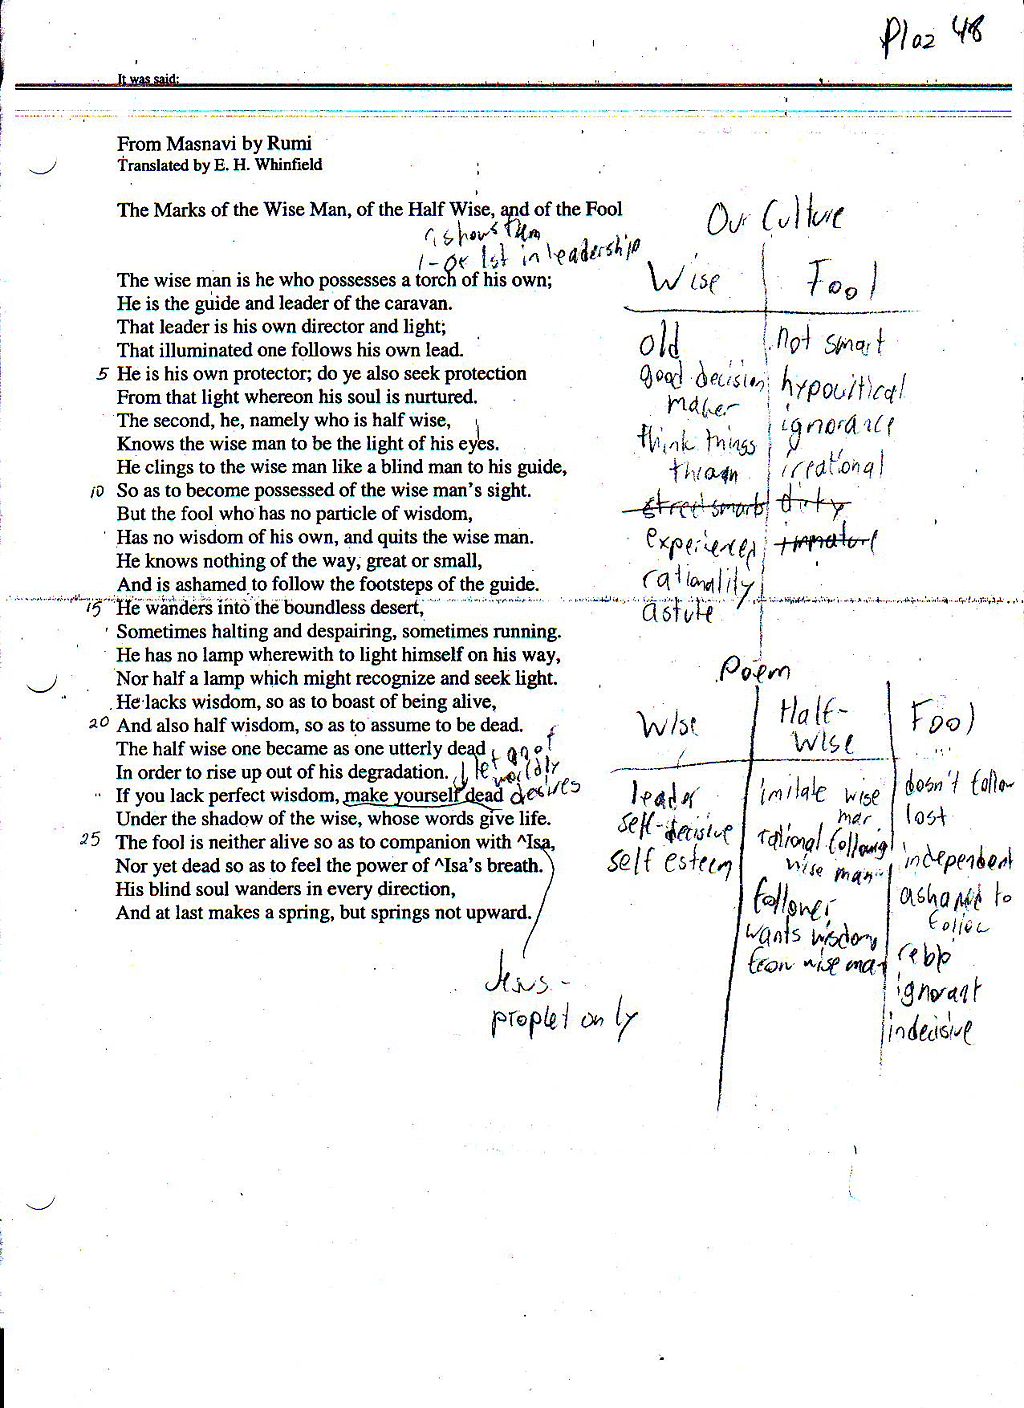 Plaz 48
It was said:
From Masnavi by Rumi
Translated by E. H. Whinfield
The Marks of the Wise Man, of the Half Wise, and of the Fool
shows him
1- or 1st in leadership
The wise man is he who possesses a torch of his own;
He is the guide and leader of the caravan.
That leader is his own director and light;
That illuminated one follows his own lead.
5 He is his own protector; do ye also seek protection
From that light whereon his soul is nurtured.
The second, he, namely who is half wise,
Knows the wise man to be the light of his eyes.
He clings to the wise man like a blind man to his guide,
10 So as to become possessed of the wise man's sight.
But the fool who has no particle of wisdom,
Has no wisdom of his own, and quits the wise man.
He knows nothing of the way, great or small,
And is ashamed to follow the footsteps of the guide.
15 He wanders into the boundless desert,
Sometimes halting and despairing, sometimes running.
He has no lamp wherewith to light himself on his way,
Nor half a lamp which might recognize and seek light.
He lacks wisdom, so as to boast of being alive,
20 And also half wisdom, so as to assume to be dead.
The half wise one became as one utterly dead
In order to rise up out of his degradation.
If you lack perfect wisdom, make yourself dead
Under the shadow of the wise, whose words give life.
25 The fool is neither alive so as to companion with ^Isa,
Nor yet dead so as to feel the power of ^Isa's breath.
His blind soul wanders in every direction,
And at last makes a spring, but springs not upward.
let go of
worldly
desires
Jesus -
prophet only
Our Culture
Wise Fool
old not smart
good decision hypocritical
maker ignorance
think things irrational
through
street smarts dirty
experienced immature
rationality
astute
Poem
Wise Half- Fool
Wise
leader imitate wise doesn't follow
self-decisive man lost
self esteem rational following independent
wise man ashamed to
follower follow
wants wisdom
from wise man
ignorant
indecisive